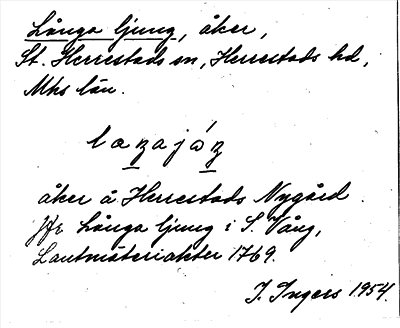 Långa ljung, åker,
St. Herrestads sn, Herrestads hd,
Mhs län.
åker å Herrestads Nygård.
Jfr Långa ljung i S. Vång,
Lantmäteriakter 1769.
I. Ingers 1954.